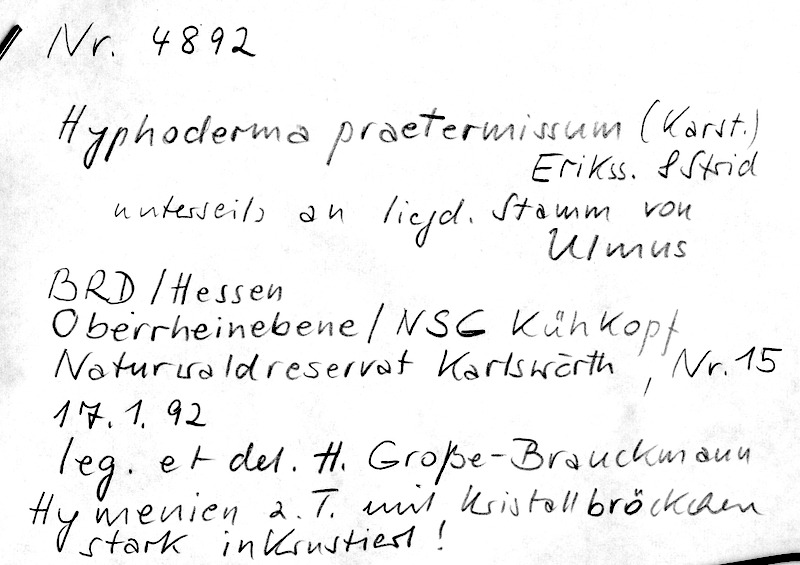 Nr. 4892
Hyphoderma praetermissum (Karst.)
Erikss. & Strid
unterseits an liegd. Stamm von
Ulmus
BRD / Hessen
Oberrheinebene / NSG Kühkopf
Naturwaldreservat Karlswörth, Nr. 15
17. 1. 92
leg. et det. H. Große-Brauckmann
Hymenien z. T. mit Kristallbröckchen
stark inkrustiert!